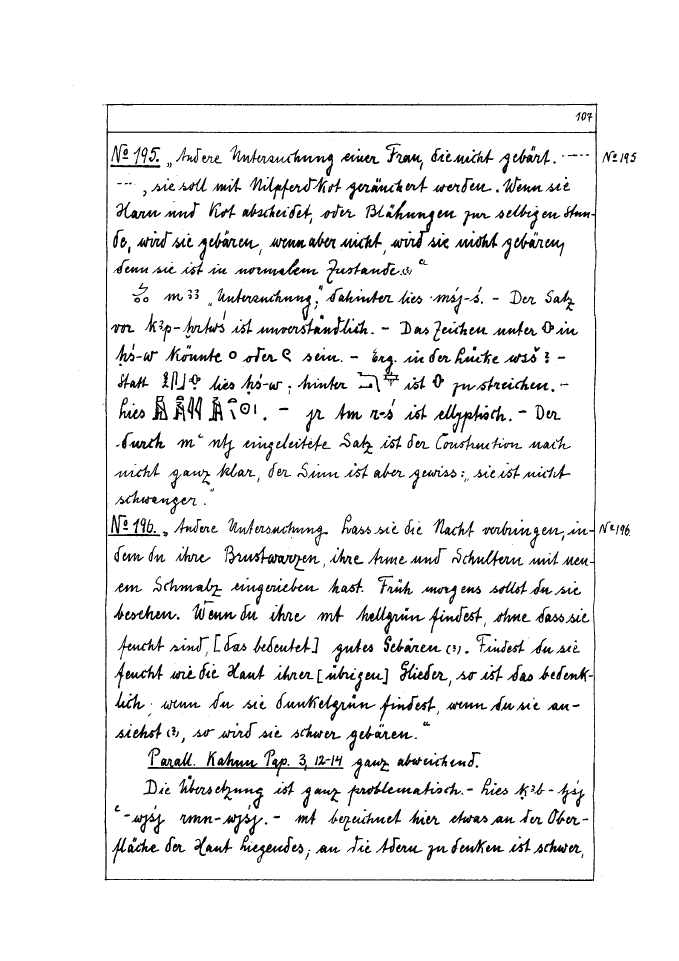 107
No 195. „Andere Untersuchung einer Frau, die nicht gebärt. ----- No 195
---, sie soll mit Nilpferdkot geräuchert werden. Wenn sie
Harn und Kot abscheidet, oder Blähungen zur selbigen Stun-
de, wird sie gebären, wenn aber nicht, wird sie nicht gebären,
denn sie ist in normalem Zustande.(?)“
m33 „Untersuchung“; dahinter lies mśj-ś. – Der Satz
vor k3p-ḫrtwś ist unverständlich. – Das Zeichen unter in
ḥś-w könnte o oder sein. – Erg. in der Lücke wsš ? –
Statt lies ḥś-w; hinter ist zu streichen. –
Lies . – jr tm r-ś ist ellyptisch. – Der
durch mꜥ ntj eingeleitete Satz ist der Construction nach
nicht ganz klar, der Sinn ist aber gewiss: „sie ist nicht
schwanger.“
No 196. „Andere Untersuchung. Lass sie die Nacht verbringen, in- No 196.
dem du ihre Brustwarzen, ihre Arme und Schultern mit neu-
em Schmalz eingerieben hast. Früh morgens sollst du sie
besehen. Wenn du ihre mt hellgrün findest, ohne dass sie
feucht sind, [das bedeutet] gutes Gebären (?). Findest du sie
feucht wie die Haut ihrer [übrigen] Glieder, so ist das bedenk-
lich; wenn du sie dunkelgrün findest, wenn du sie an-
siehst (?), so wird sie schwer gebären.“
Parall. Kahun Pap. 3, 12-14 ganz abweichend.
Die Übersetzung ist ganz problematisch. – Lies
ꜥ-wjśj rmn-wjśj. – mt bezeichnet hier etwas an der Ober-
fläche der Haut Liegendes; an die Adern zu denken ist schwer,